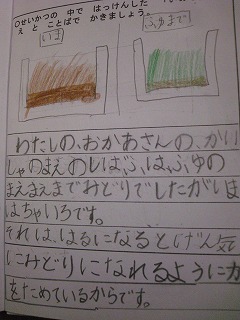 ○せいかつの 中で はっけんした
えと ことばで かきましょう。
いま
ふゆまで
わたしの、おかあさんの、かい
しゃのまえのしばふは、ふゆの
まえまえまでみどりでしたがいま
はちゃいろです。
それは、はるになるとげん気
にみどりになれるように力
をためているからです。